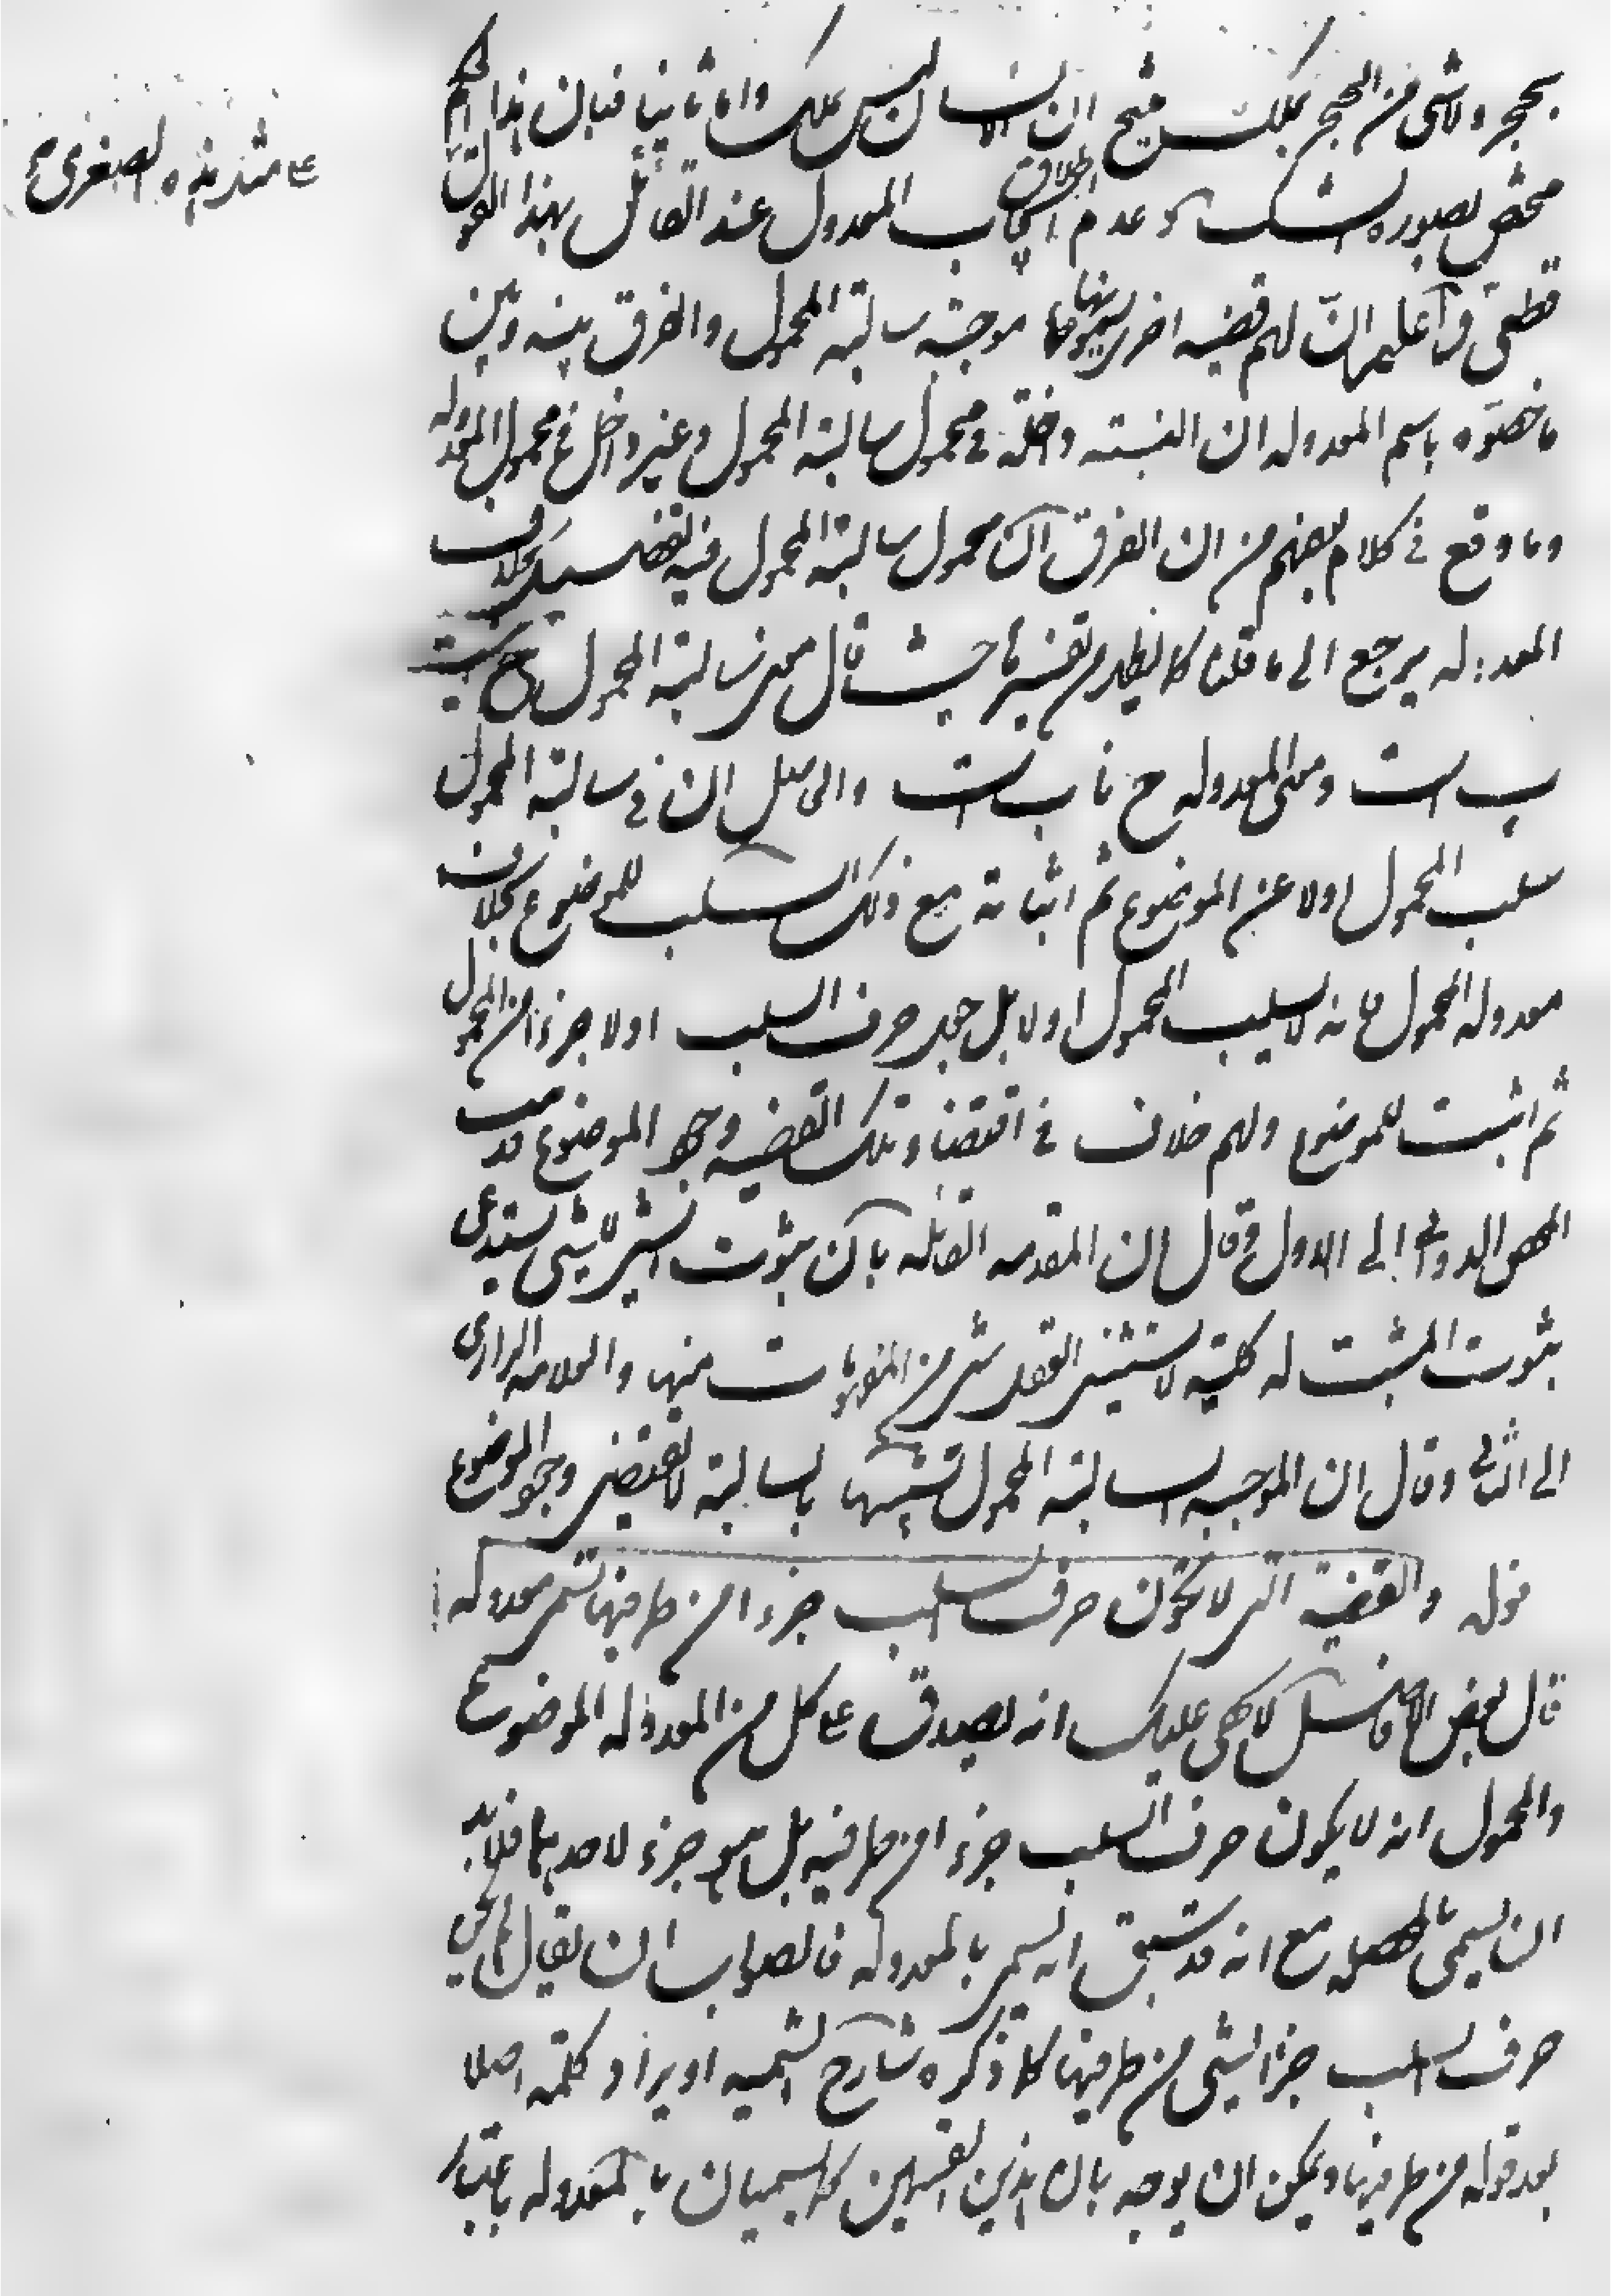 بحجر ولا شئ من الحجر بملك ينتج ان الانسان ليس بملك واما ثانيا فبان هذا الحكم
مختص بصورة الشك و عدم اطلاق ايجاب المعدول عند القائل بهذا القول
قطعى واعلم ان لهم قضيه اخرى يسمونها موجبة سالبة المحمول والفرق بينه وبين
ما خصوه باسم المعدوله ان النسبته داخلة فے محمول سالبة المحمول و غير داخل فى محمول المعدوله
وما وقع فے كلام بعضهم من ان الفرق ان محمول سالبة المحمول فيه تفصيل بخلاف
المعدوله يرجع الى ما قلنا كما يظهر من تفسيرها حيث قال معنى سالبة المحمول ج نيست
ب است ومعنى المعدوله ج نا ب است والحاصل ان فے سالبة المحمول
سلب المحمول اولا عن الموضوع ثم اثباته مع ذلك السلب للموضوع بخلاف
معدوله المحمول فانه لا يسلب المحمول اولا بل جعل حرف السلب اولا جزءا من المحمول
ثم اثبت للموضوع ولهم خلاف فے اقتضاء تلك القضيه وجود الموضوع فذهب
المحقق الدوانى الى الاول وقال ان المقدمه القائله بان ثبوت الشئ لشئ يستدعى
ثبوت المثبت له كلية لا يستثنى العقل شئ من المفهومات منها والعلامه الرازى
الى الثانى وقال ان الموجبه السالبته المحمول تشبهها بالسالبة لا تقتضى وجود الموضوع
قوله والقضية التى لا تكون حرف السلب جزءا من طرفيها تسمى معدوله
قال بعض الافاضل لا يخفى عليك انه يصدق على كل من المعدوله الموضوع
والمحمول انه لا يكون حرف السلب جزءا من طرفيه بل هو جزء لاحدهما فلا بد
ان يسمى محصله مع انه قد سبق انه تسمى بالمعدوله فالصواب ان يقال لم يكن
حرف السلب جزءا لشئ من طرفيها كما ذكره شارح الشمسيه او يراد كلمة اصلا
بعد قوله من طرفيها ويمكن ان يوجه بان هذين القسمين كما يسميان بالمعدوله باعتبار